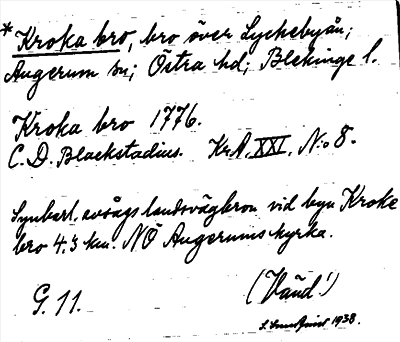 *Kroka bro, bro över Lyckebyån;
Augerum sn; Östra hd; Blekinge l.
Kroka bro 1776.
C. D. Blackstadius. Kr.A. XXI. N:o 8.
Synbarl. avsågs landsvägbron vid byn Kroke
bro 4.3 km. NÖ Augerums kyrka.
G. 11.
1938.